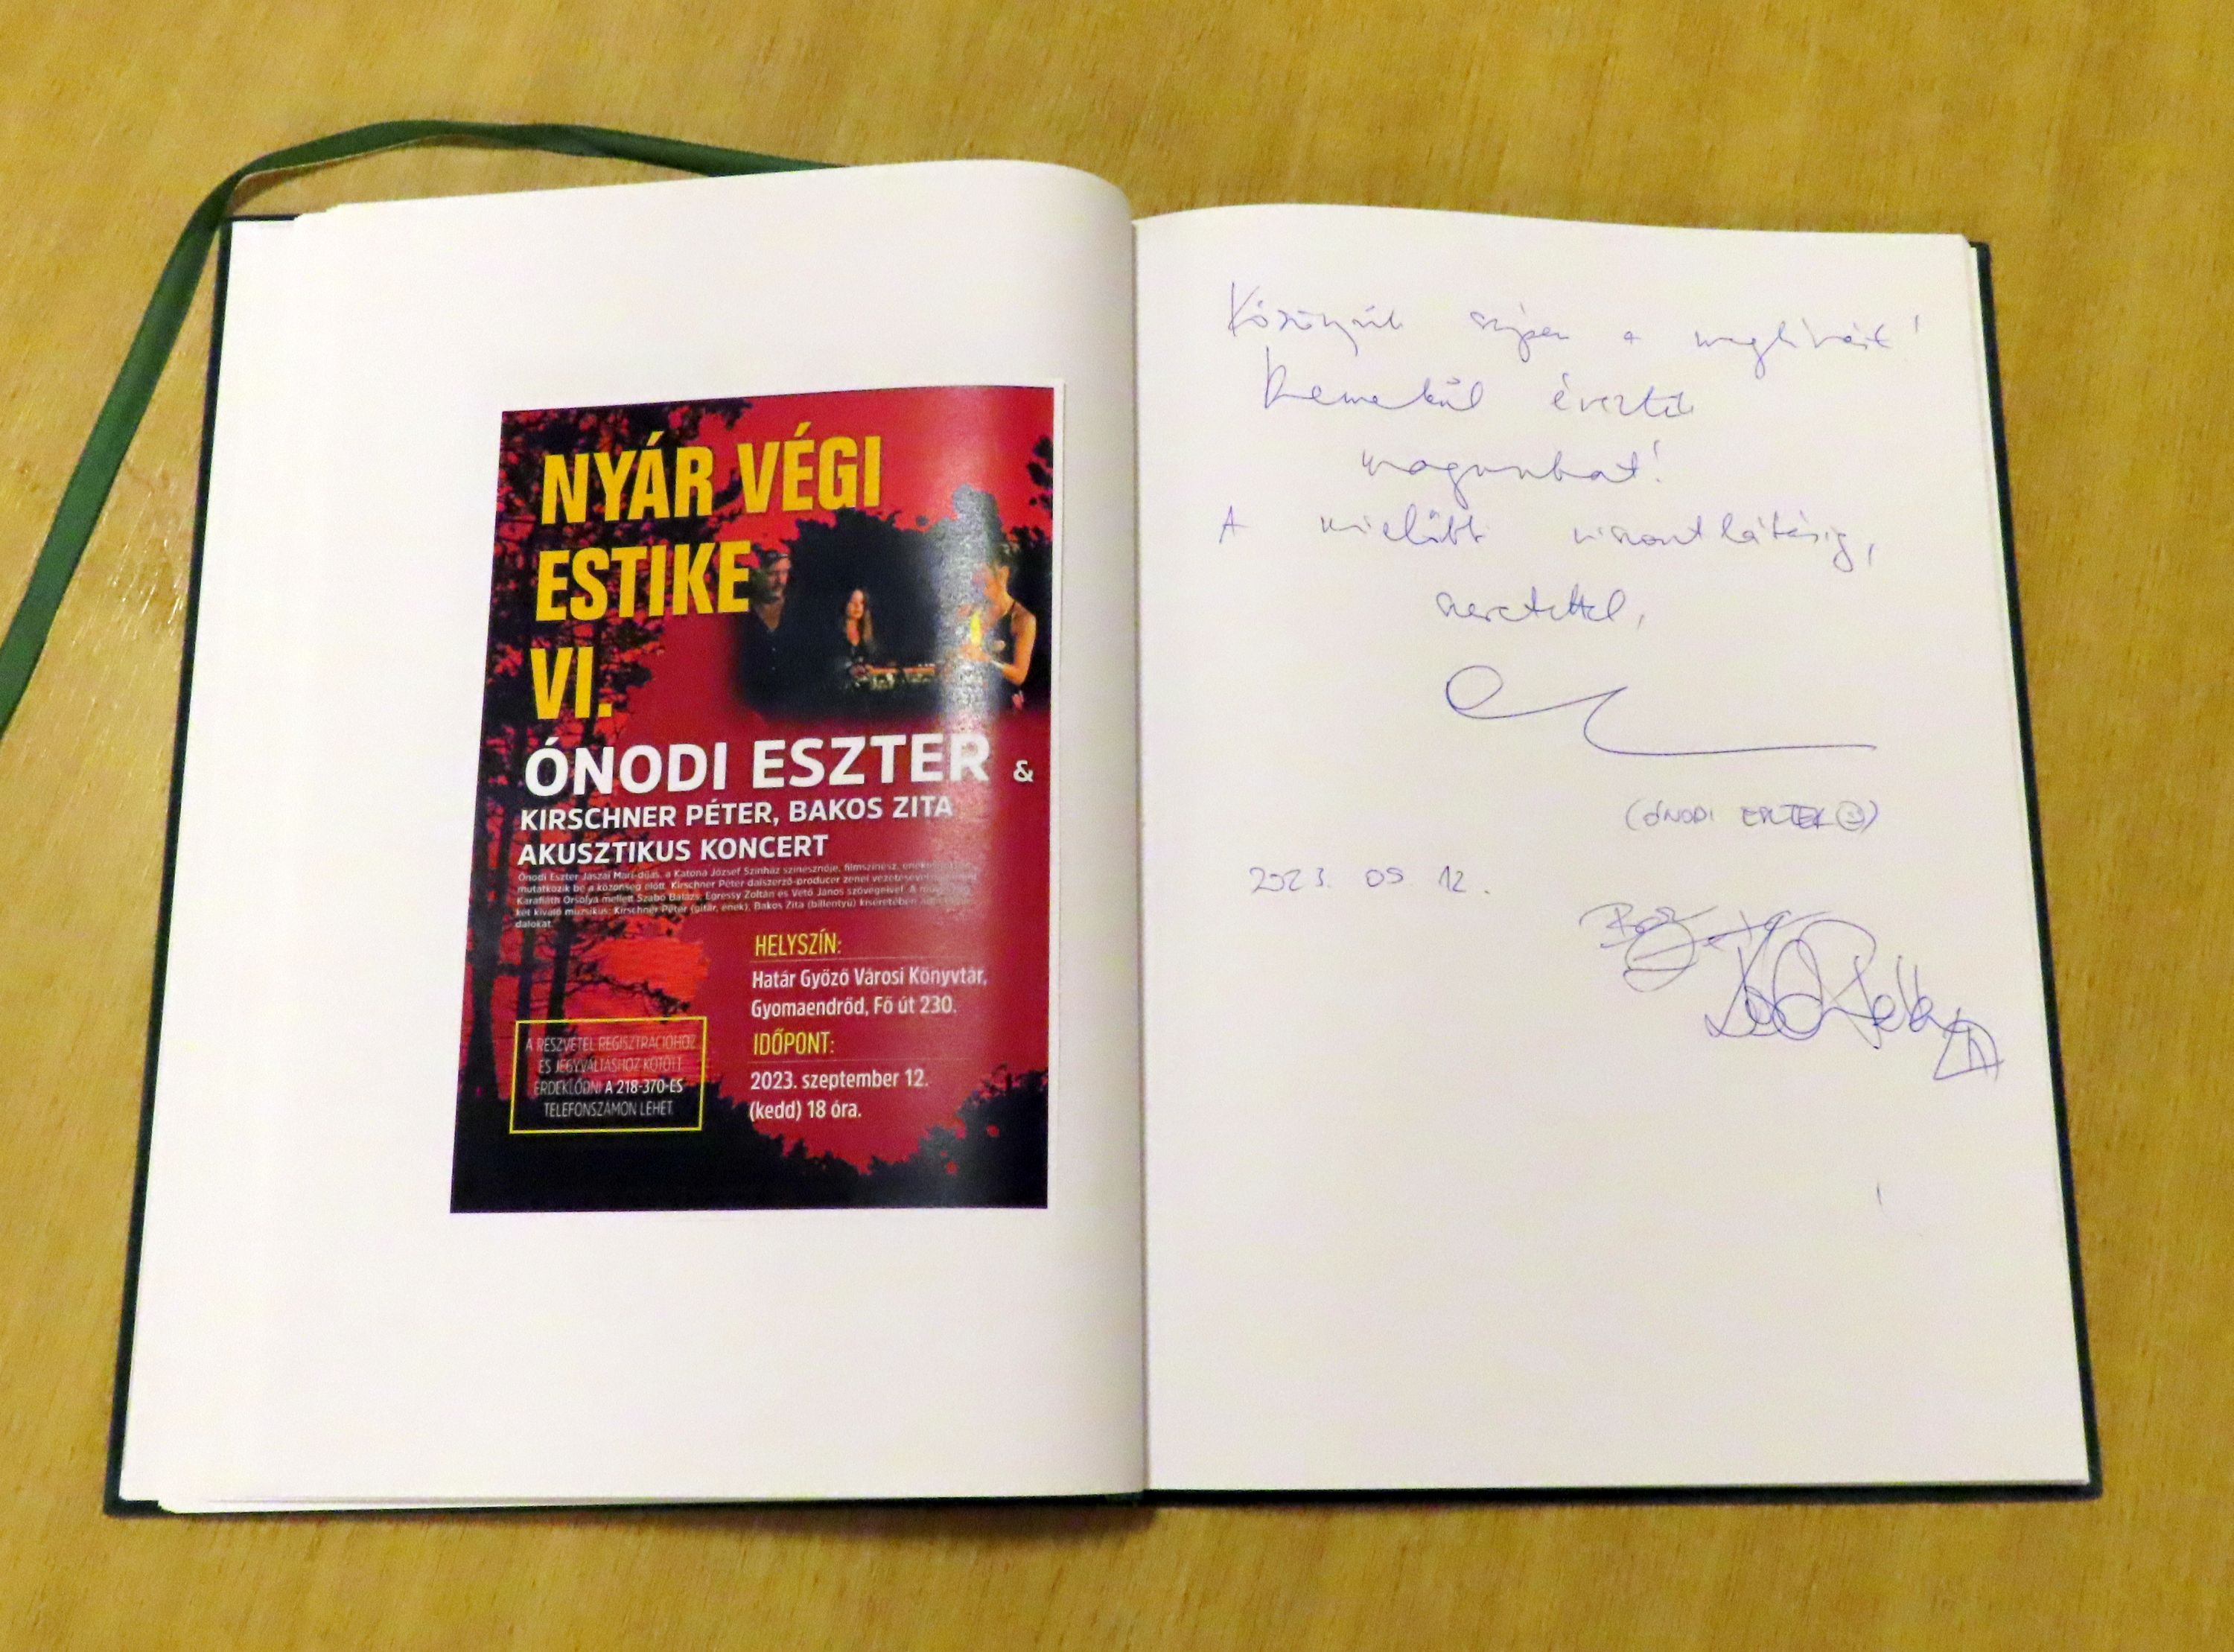 NYÁR VÉGI
ESTIKE
VI.
ÓNODI ESZTER &
KIRSCHNER PÉTER, BAKOS ZITA
AKUSZTIKUS KONCERT
Ónodi Eszter Jászai Mari-díjas, a Katona József Színház színésznője, filmszínész,
mutatkozik be a közönség előtt. Kirschner Péter dalszerző-producer zenei
Karafiáth Orsolya mellett Szabó Balázs, Egressy Zoltán és Vető János szövegeivel. A
két kiváló muzsikus: Kirschner Péter (gitár, ének), Bakos Zita (billentyű) kíséretében
dalokat.
HELYSZÍN:
Határ Győző Városi Könyvtár,
Gyomaendrőd, Fő út 230.
IDŐPONT:
2023. szeptember 12.
(kedd) 18 óra.
A RÉSZVÉTEL REGISZTRÁCIÓHOZ
ÉS JEGYVÁLTÁSHOZ KÖTÖTT.
ÉRDEKLŐDNI A 218-370-ES
TELEFONSZÁMON LEHET.
Köszönjük szépen a meghívást!
Remekül éreztük
magunkat!
A mielőbbi viszontlátásig,
szeretettel,
(ÓNODI ESZTER)
2023. 09. 12.